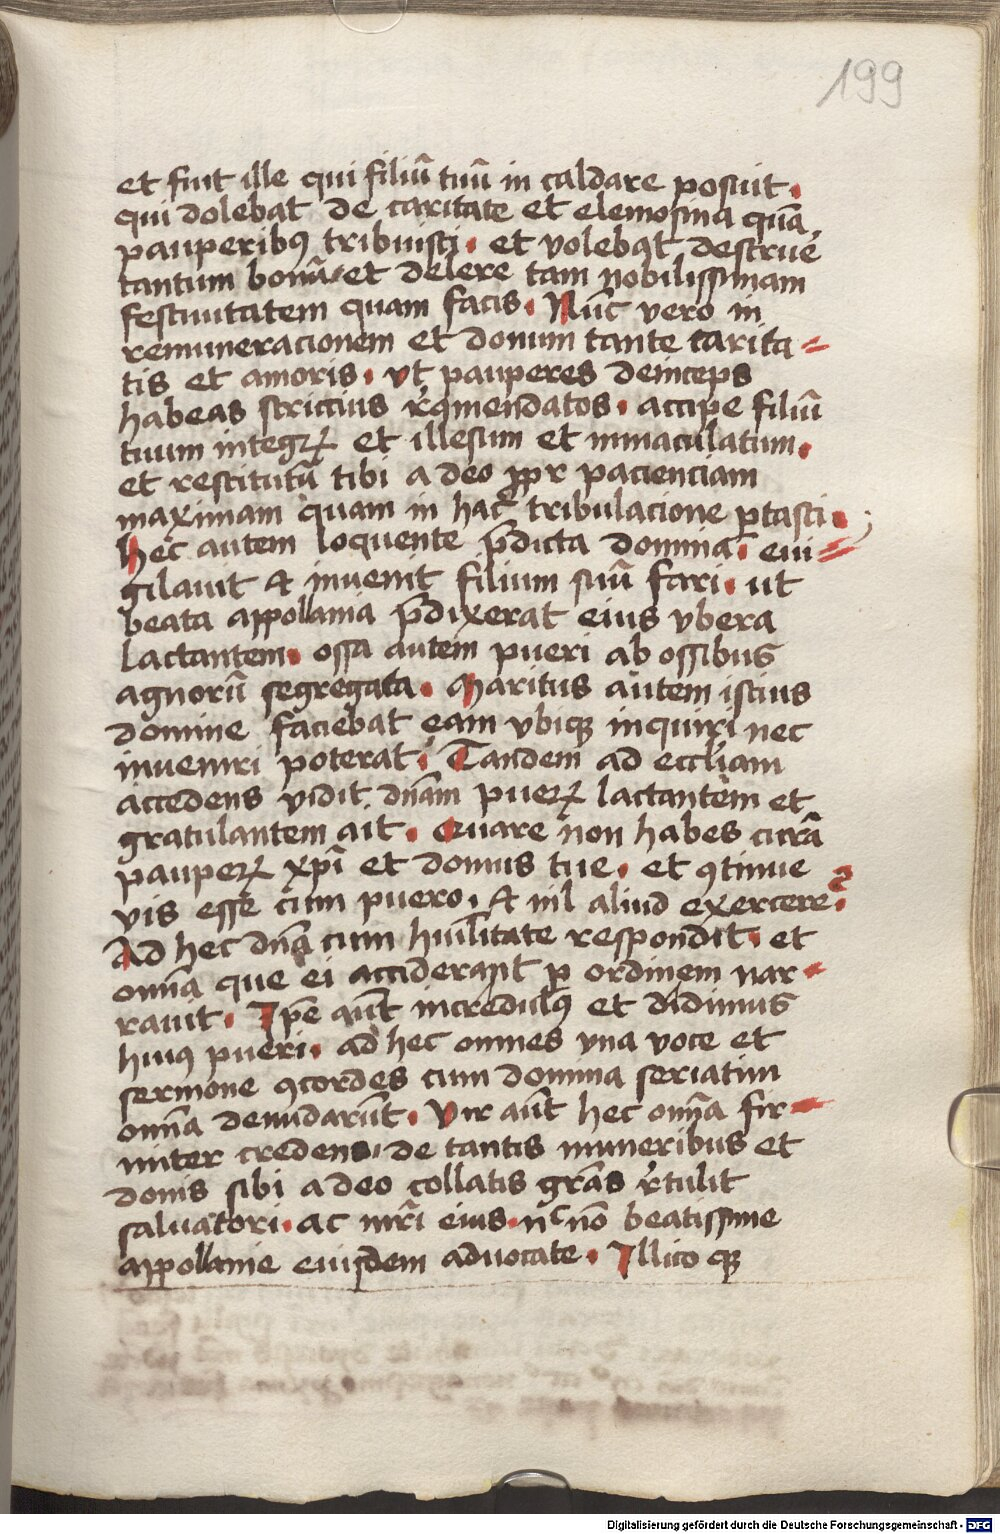 199
et fuit ille qui filiū tuū in caldare posuit.
qui dolebat de caritate et elemosina quā
pauperibꝰ tribuisti. et volebat destrue͛
tantum bonū et delere tam nobilissimam
festiuitatem quam facis. Nūc vero in
remuneracionem et donum tante carita=
tis et amoris. vt pauperes deinceps
habeas strictius r͛ꝯmendatos. accipe filiū
tuum integrꝝ et illesum et inmaculatum.
et restitutū tibi a deo ꝓpt͛ pacienciam
maximam quam in hac tribulacione ꝑtasti.
Hec autem loquente p̄dicta domina. eui=
gilauit & inuenit filium suū fari. ut
beata appollania p̄dixerat eius vbera
lactantem. ossa autem pueri ab ossibus
agnorū segregata. Maritus autem istius
domine faciebat eam vbiqꝫ inquiri nec
inueniri poterat. Tandem ad eccłiam
accedens vidit dn̄am puerꝝ lactantem et
gratulantem ait. Quare non habes curā
pauperꝝ xp̄i et domus tue. et ꝯtinue
vis esse cum puero. & nil aliud exercere?
Ad hec dn̄a cum huīlitate respondit. et
om̄a que ei acciderant ꝑ ordinem nar=
rauit. Ip̄e aūt incredulꝰ et didimus
huiꝰ pueri. ad hec omnes vna voce et
sermone ꝯcordes cum domina seriatim
om̄a denudarūt. Vir aūt hec om̄a fir=
miter credens. de tantis muneribus et
donis sibi a deo collatis grās r͛tulit
saluatori. ac mr̄i eius. nᶜ nō beatissime
appollanie eiusdem aduocate. Illico qꝫ
Digitalisierung gefördert durch die Deutsche Forschungsgemeinschaft - DFG